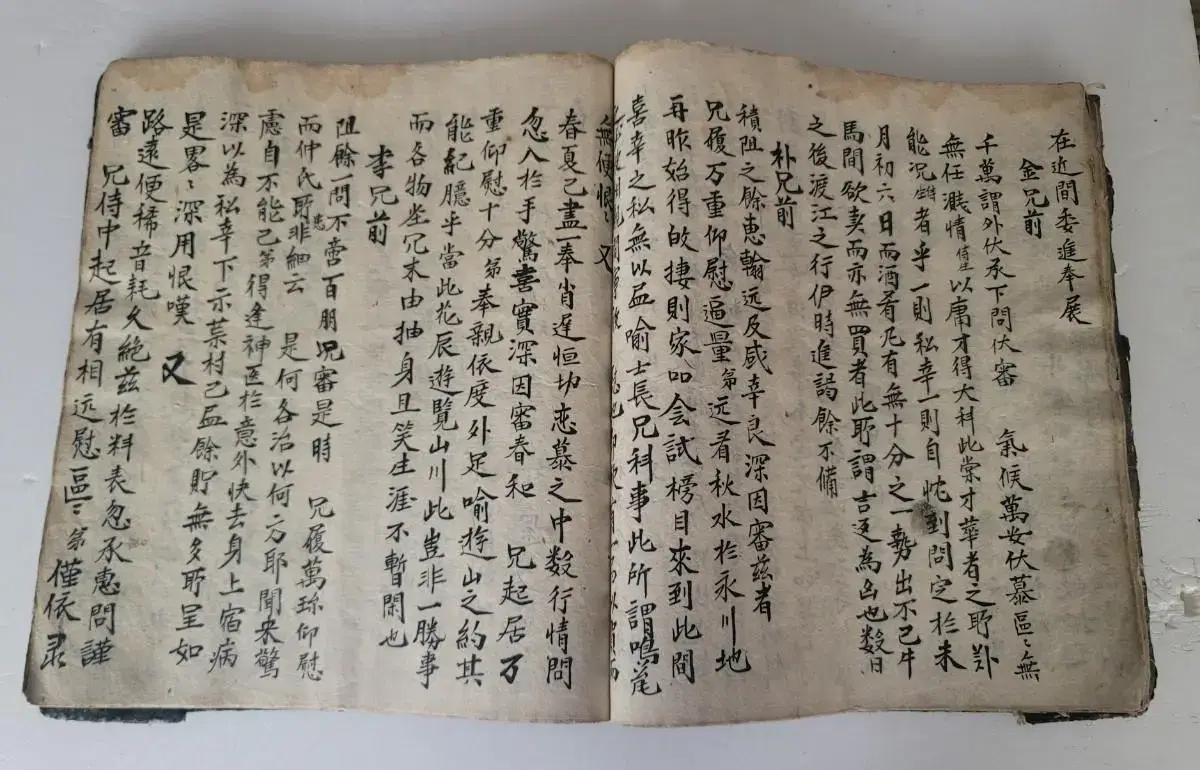 在近間委進奉展
金兄前
千萬謂外伏承下問伏審 氣候萬安伏慕區〻無
無任賤情侍生以庸才得大科此崇才華者之所
能況者乎一則私幸一則自忱到問定於未
月初六日而酒肴凡有無十分之一勢出不已牛
馬間欲賣而亦無買者此所謂吉返為凶也数日
之後渡江之行伊時進謁餘不備
朴兄前
積阻之餘惠翰远及感幸良深因審玆者
兄履万重仰慰逼量弟远看秋水於永川地
再昨始得故捿則家叩会試榜目來到此間
喜幸之私無以盃喻士長兄科事此所謂鳴
無便恨〻 又
春夏已盡一奉尚遅恒切恋慕之中数行情問
忽入於手驚喜實深因審春和 兄起居万
重仰慰十分弟奉親依度外足喻遊山之約其
能紀臆乎當此花辰遊覧山川此豈非一勝事
而各物坐冗末由抽身且笑生涯不暫閑也
李兄前
阻餘一問不啻百朋况審是時 兄履萬珎仰慰
而仲氏所患非細云 是何各治以何方耶聞来驚
慮自不能已弟得逢神医於意外快去身上宿病
深以為私幸下示葉村已盃餘貯無多所呈如
是畧〻深用恨嘆 又
路遠便稀音耗久絶玆於料表忽承惠問謹
審 兄侍中起居有相远慰區〻弟僅依